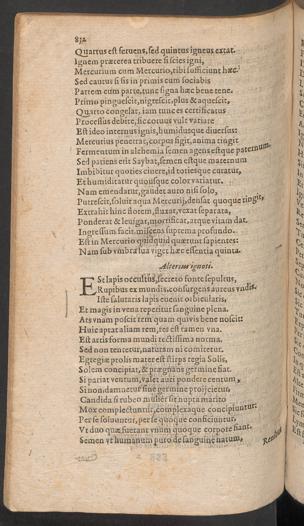 832
Quartus est feruens, sed quintus igneus extat.
Ignem præterea tribuere si scies igni,
Mercurium cum Mercurio, tibi sufficiunt hæc.
Sed cautus si sis in primis cum sociabis
Partem cum parte, tunc signa hæc bene tene.
Primo pinguescit, nigrescit, plus & aquescit,
Quarto congelat, iam tunc es certificatus
Processus debite, sic coitus vult variare
Est ideo internus ignis, humidusque diuersus:
Mercurius penetrat, corpus figit, anima tingit
Fermentum in alchemia semen agens estque paternum.
Sed patiens erit Saybat, semen estque maternum
Imbibitur quoties cinere, id totiesque curatur,
Et humiditatur quousque color variatur.
Nam emendatur, gaudet auro nisi solo,
Putrescit, soluit aqua Mercurij, densat quoque tingit,
Extrahit hinc florem, fluxat, vexat separata,
Ponderat & leuigat, mortificat, atque vitam dat.
Ingressum facit miscens suprema profundo.
Est in Mercurio quidquid quærunt sapientes:
Nam sub vmbra sua viget hæc essentia quinta.
Alterius ignoti.
ESt lapis occultus, secreto fonte sepultus,
Ruptibus ex mundis, consurgens aureus vndis.
Iste salutaris lapis euenit orbicularis,
Et magis in vena reperitur sanguine plena.
Ars vnam poscit rem quam quiuis bene noscit:
Huic aptat aliam rem, res est tamen vna.
Est artis forma mundi rectissima norma.
Sed non tenetur, naturam ni comitetur.
Egregiæ prolis mater est stirps regia Solis,
Solem concipiat, & prægnans germine fiat.
Si pariat ventum, valet auri pondere centum,
Si non, damnetur sine germine proijcietur.
Candida si rubeo mulier sit nupta marito
Mox complectuntur, complexaque concipiuntur:
Per se soluuntur, per se quoque conficiuntur,
Vt duo quæ fuerant vnum quoque corpore fiant.
Semen vt humanum puro de sanguine natum,